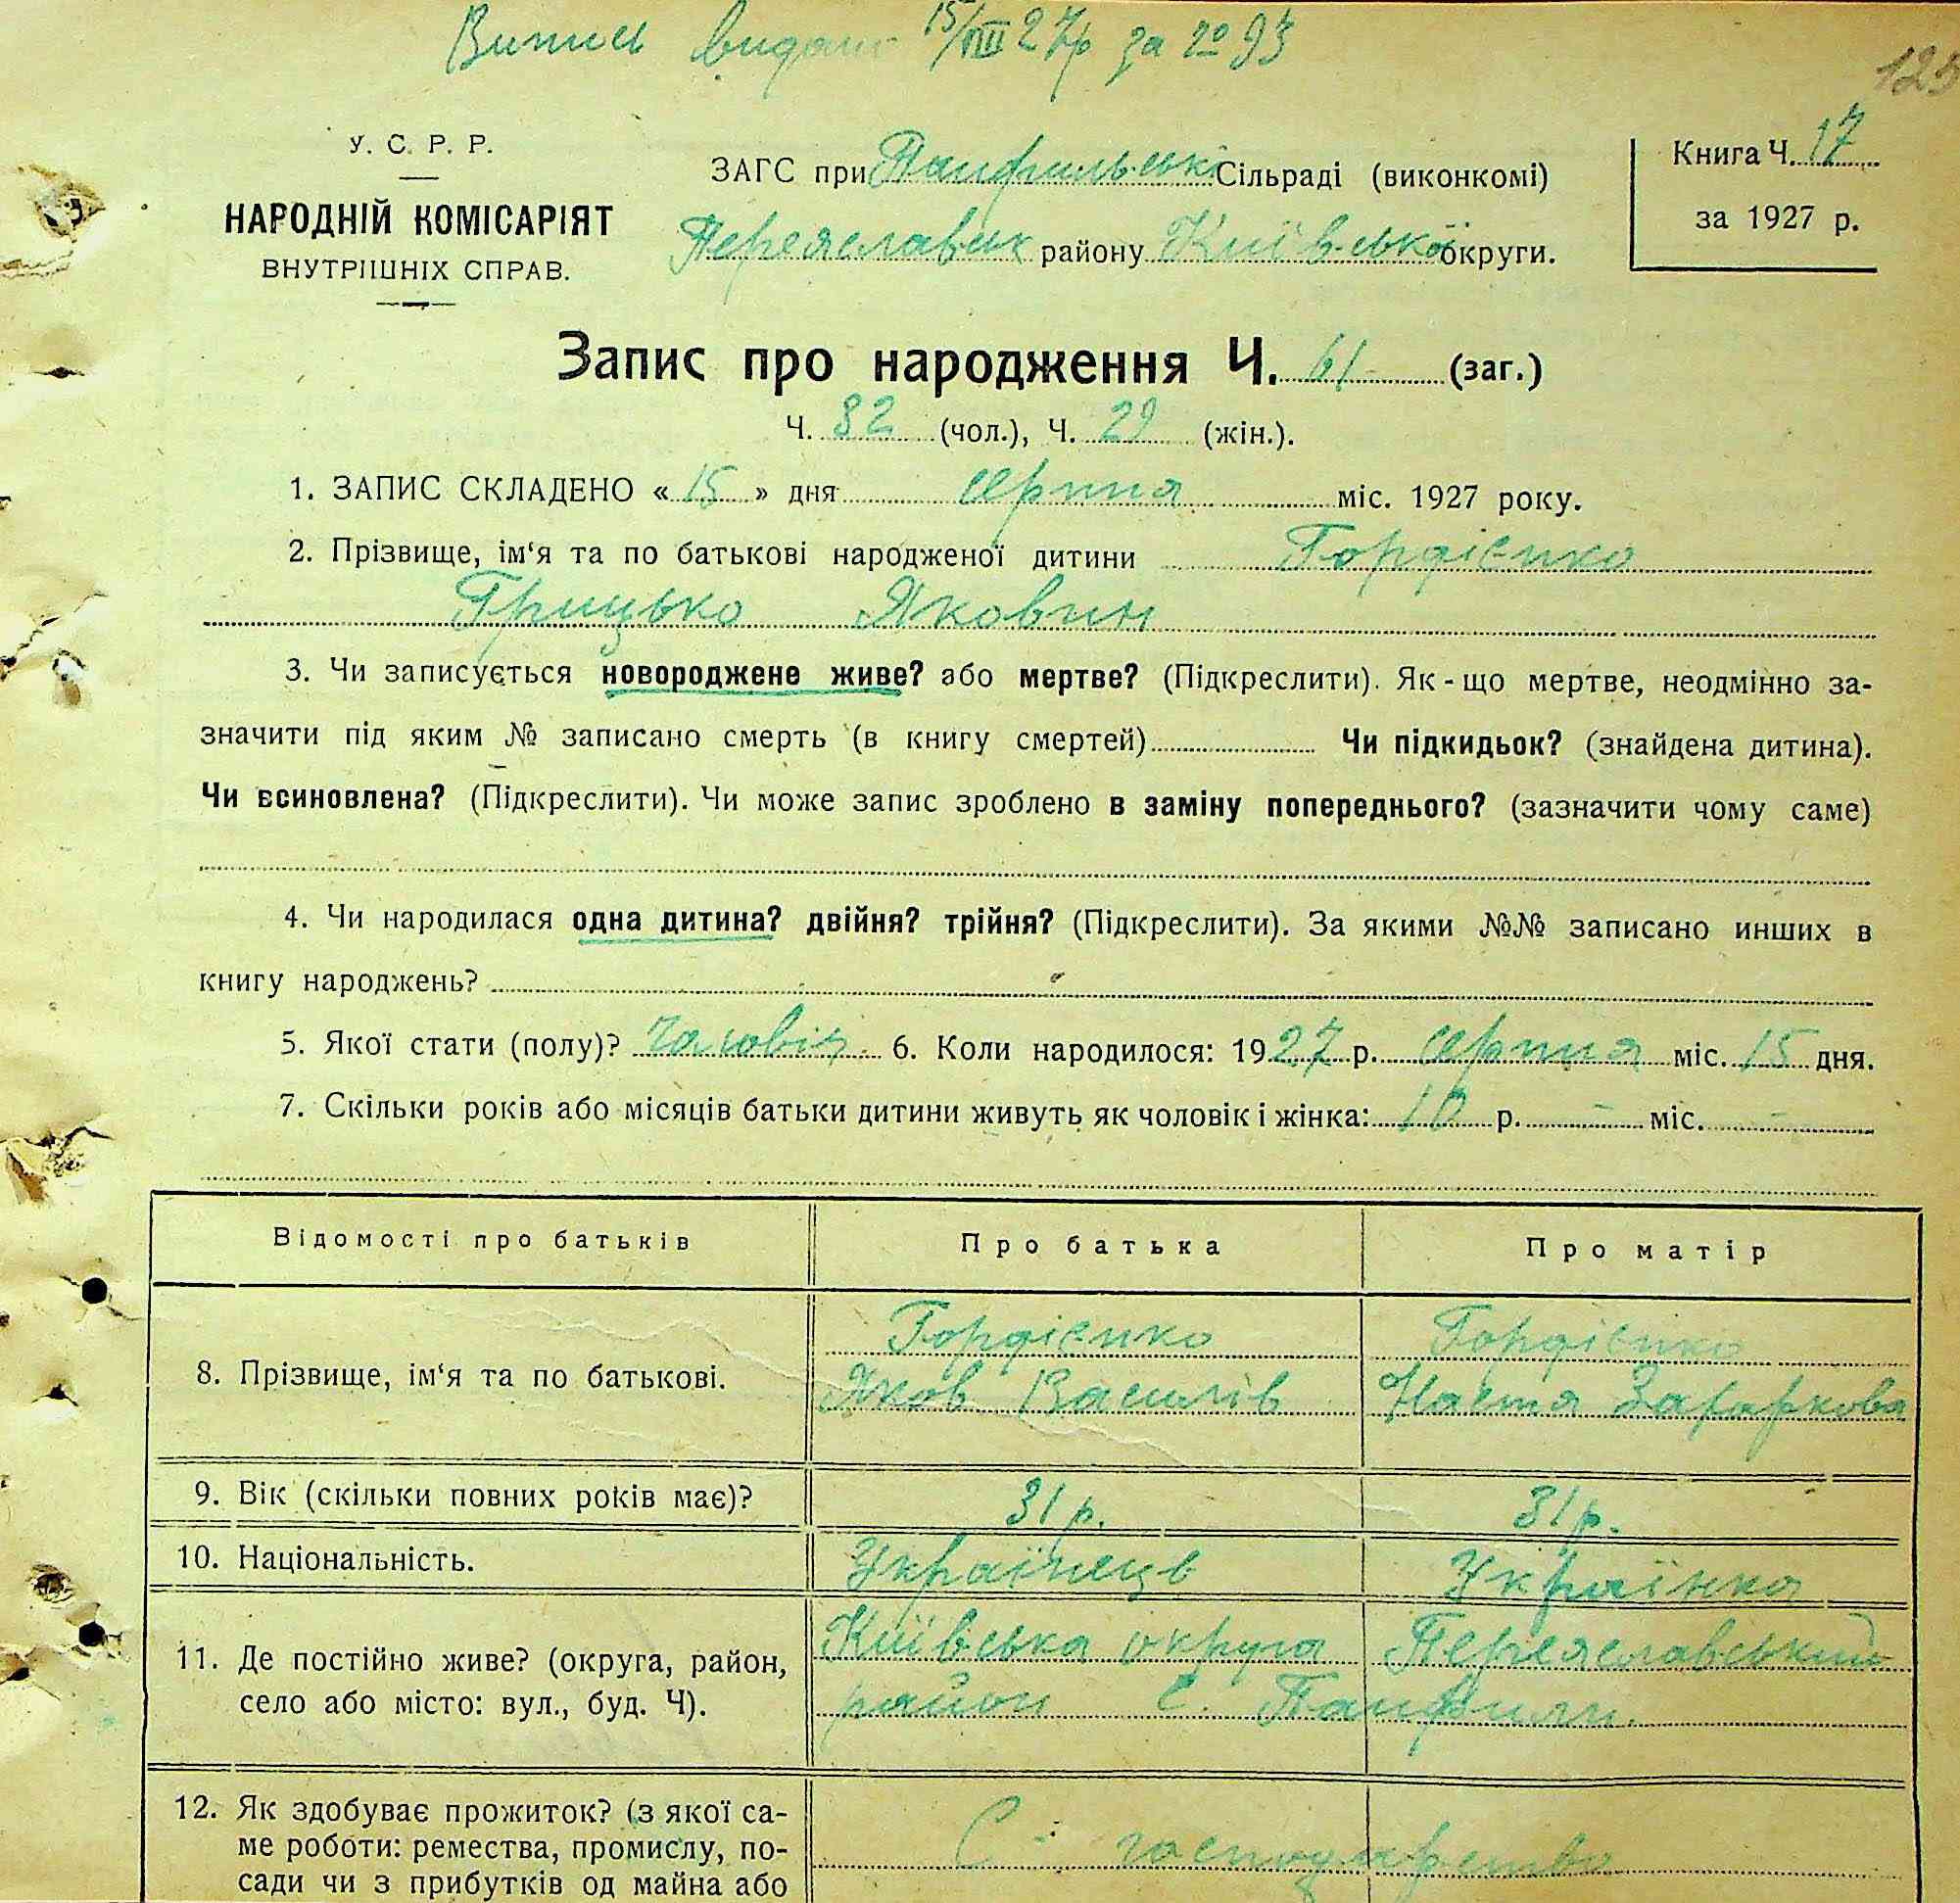 Випис видано 15/VIII 27р за № 93
У. С. Р. Р.
НАРОДНІЙ КОМІСАРІЯТ
ВНУТРІШНІХ СПРАВ.
ЗАГС при Панфильські Сільраді (виконкомі)
Переяславськ району Київської округи.
Книга Ч. 17
за 1927 р.
Запис про народження Ч. 61 (заг.)
Ч. 32 (чол.), Ч. 29 (жін.).
1. ЗАПИС СКЛАДЕНО « 15 » дня серпня міс. 1927 року.
2. Прізвище, ім‘я та по батькові народженої дитини Гордієнко
Грицько Яковин
3. Чи записується новороджене живе? або мертве? (Підкреслити). Як-що мертве, неодмінно за-
значити під яким № записано смерть (в книгу смертей) Чи підкидьок? (знайдена дитина).
Чи всиновлена? (Підкреслити). Чи може запис зроблено в заміну попереднього? (зазначити чому саме)
4. Чи народилася одна дитина? двійня? трійня? (Підкреслити). За якими №№ записано инших в
книгу народжень?
5. Якої стати (полу)? чоловіч. 6. Коли народилося: 1927 р. серпня міс. 15 дня.
7. Скільки років або місяців батьки дитини живуть як чоловік і жінка: 10 р. – міс. –
Відомості про батьків Про батька Про матір
8. Прізвище, ім‘я та по батькові.
Гордієнко
Яков Василів
Гордієнко
Настя Захаркова
9. Вік (скільки повних років має)? 31 р. 31 р.
10. Національність. Українець Українка
11. Де постійно живе? (округа, район,
село або місто: вул., буд. Ч).
Київська округа Переяславський
район с. Панфили.
12. Як здобуває прожиток? (з якої са-
ме роботи: ремества, промислу, по-
сади чи з прибутків од майна або
С - господарство